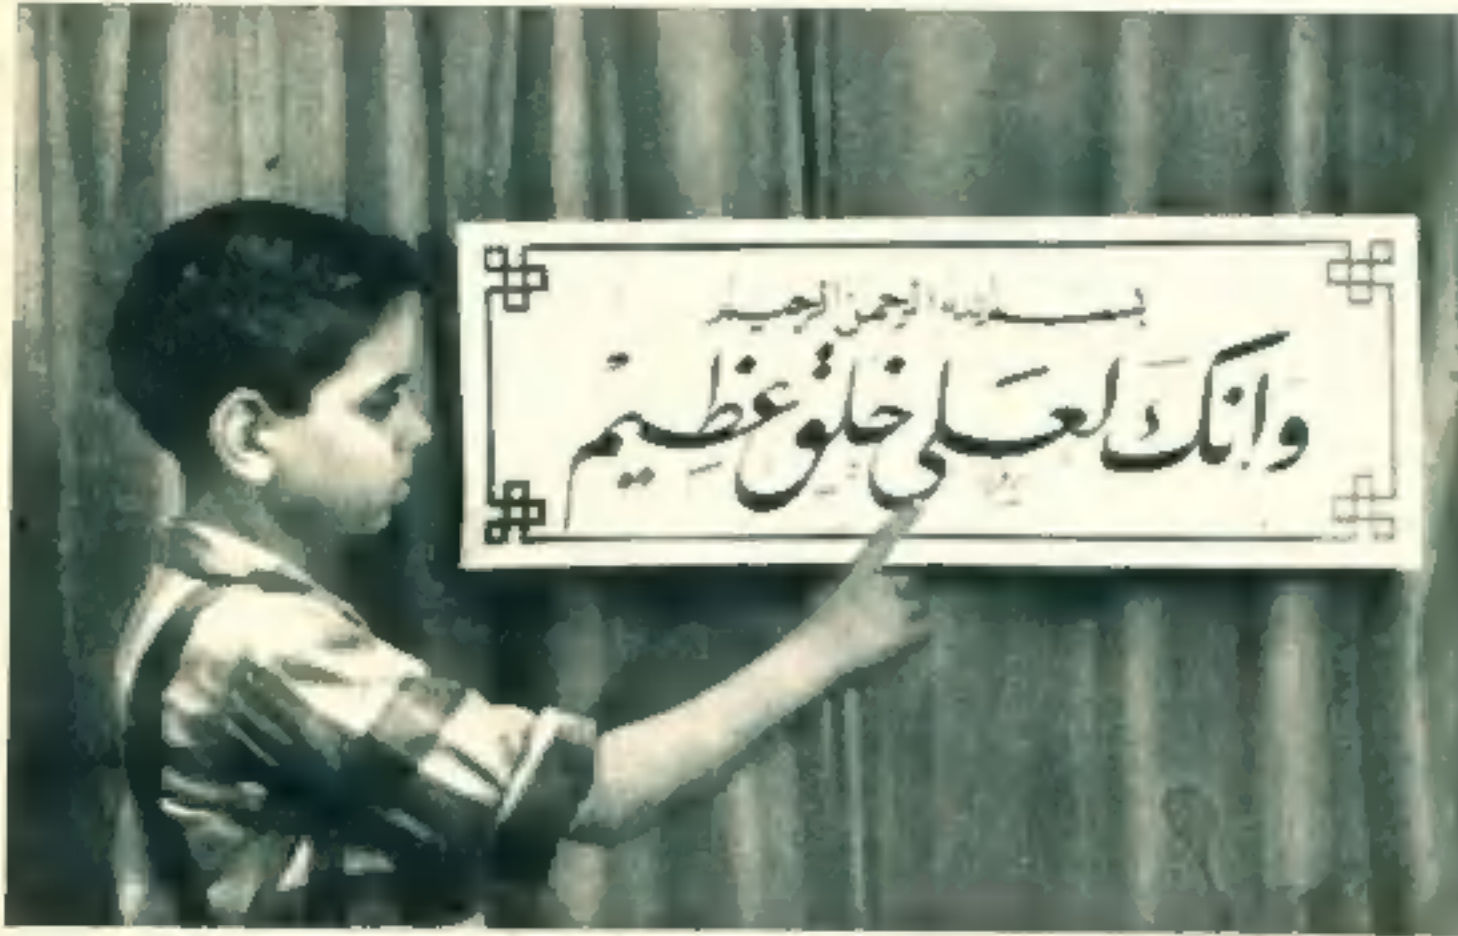 بسم الله الرحمن الرحيم
وانك لعلى خلق عظيم